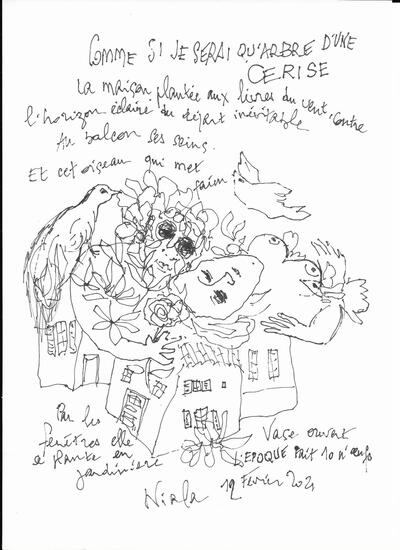 COMME SI JE SERAI QU'ARBRE D'UNE
CERISE
La maison plantée aux livres du vent contre
l'horizon éclairé du départ inévitable
Au balcon ses seins.
Et cet oiseau qui met
faim
Par les
fenêtres elle
se plante en
jardinière
Vase ouvert
L'EPOQUE FAIT 10 n'œufs
Niala 12 Février 2021